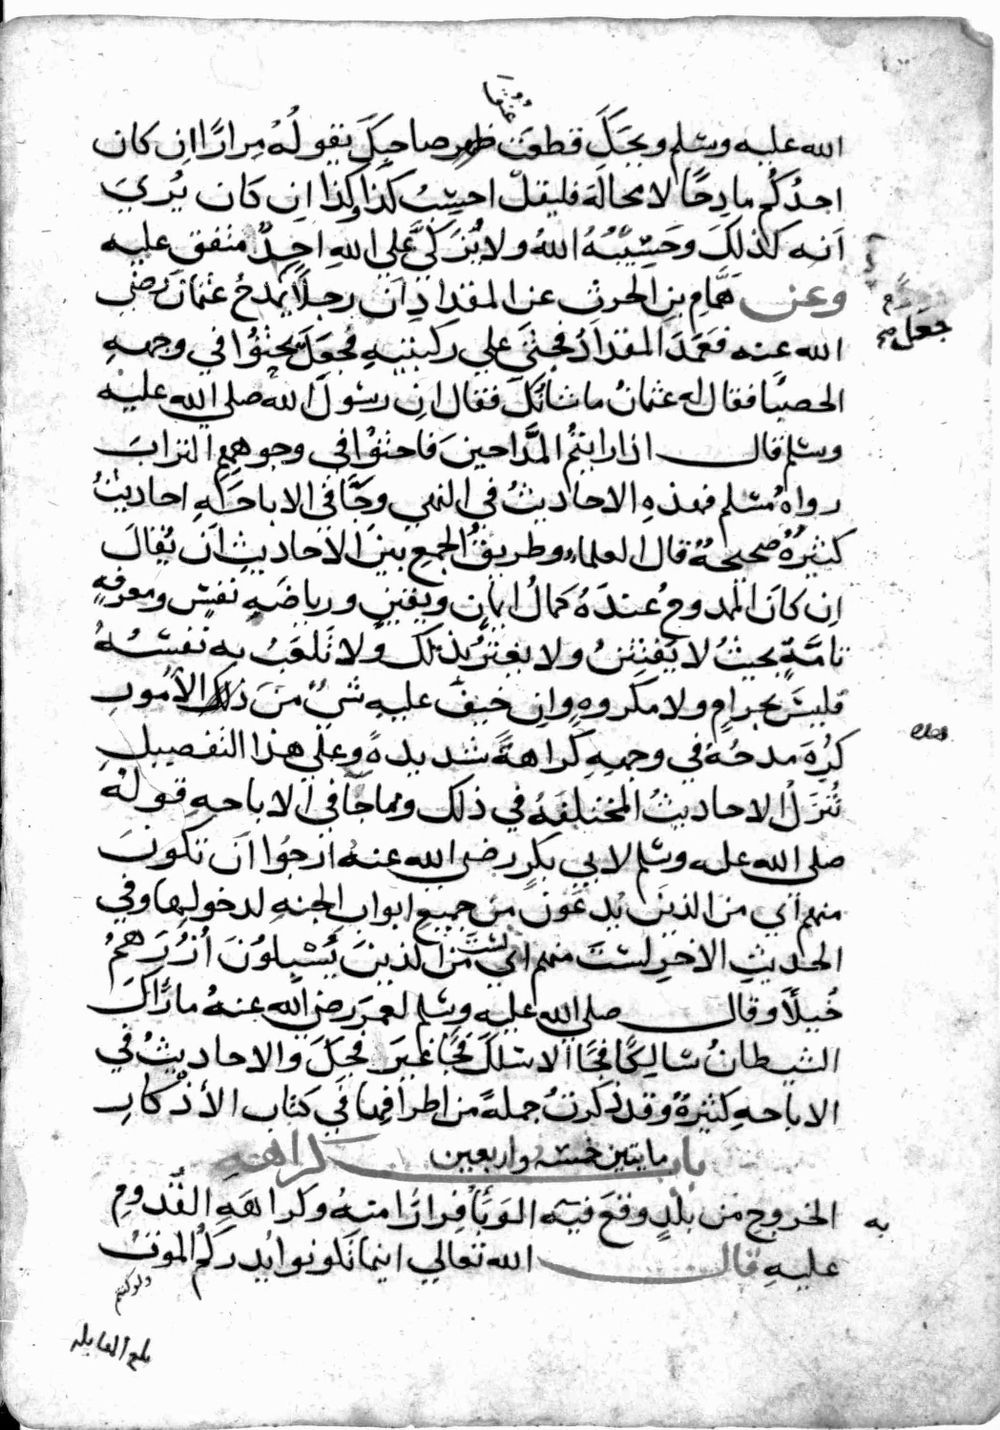 عُنُقَ
الله عليه وسلم ويحَكَ قطعتَ ظهر صاحبِكَ يقولُهُ مِرارًا ان كان
احدُكُم مادِحًا لا محالَةَ فليقلْ احسِبُ كَذا وكذا ان كان يُرَي
انه كذلكَ وحَسِيْبُهُ اللهُ ولا يُزكيَّ علي اللهِ احدٌ متفق عليه
وعن هَمَّامِ بن الحرث عن المقدادِ اَنَّ رجلًا يمدحُ عثمانَ رضي
جعَل صح
الله عنه فعَمَدَ المقدادُ فجثَي علي ركبتيهِ فجعَلَ يحثُوا في وجههِ
الحصبَا فقال له عثمانُ ما شانُكَ فقال ان رسولَ الله صلي الله عليه
وسلم قال اذا رايتُم المَّداحينَ فاحثوْا في وجوههِم الترابَ
رواهُ مسلم فهذهِ الاحاديثُ في النهي وجَّا في الاباحَهِ احاديثُ
كثيرهٌ صحيحهٌ قال العلماء وطريقُ الجمع بينَ الاحاديثِ اَن يُقالَ
اِن كانَ الممدوحُ عندَهُ كمالُ ايمانٍ ويقينٍ ورياضَهِ نفسٍ ومعرفهٍ
تامَّةٍ بحيثُ لا يَفتتنُ ولا يغترُّ بذلك ولا تَلعَبُ به نفسُهُ
فليسَ بحرامٍ ولا مكروهٍ وان خيفَ عليهِ شيٌ منَ ذلك الاُمُورِ
كُرِهَ مدحُهُ في وجههِ كراهةً شديدهً وعلي هذا التفصيلِ
تُنزَلُ الاحاديثُ المختلفَهُ في ذلك ومما جَا في الاباحهِ قولُهُ
صلي الله عليه وسلم لابي بكرٍ رضي الله عنهُ ارجُوا اَن تكونَ
منهم اَي من الذينَ يُدعَونَ من جميعِ ابوابِ الجنهِ لدخولِها وفي
الحديثِ الاخرِ لستَ منهم اي لستَ منَ الذينَ يُسْبِلُونَ اُزُرَهمُ
خُيلَا وقال صلي الله عليه وسلم لعمرَ رضي الله عنهُ ما رَاَكَ
الشيطانُ سالِكًا فجًا الا سَلكَ فَجًا غيرَ فجكَ والاحاديثُ في
الاباحهِ كثيرهٌ وقد ذكرتُ جملةً من اطرافِها في كتاب الأذْكارِ
باب مايتين خمسه واربعين كراهه
الخروجِ من بلدٍ وقعَ فيه الوَبَأُ فِرارًا منهُ وكراهَهِ القُدومِ
عليهِ قال الله تعالي اينما تكونوا يُدرككُم الموتُ
ولو كنتم
بلغ المقابله